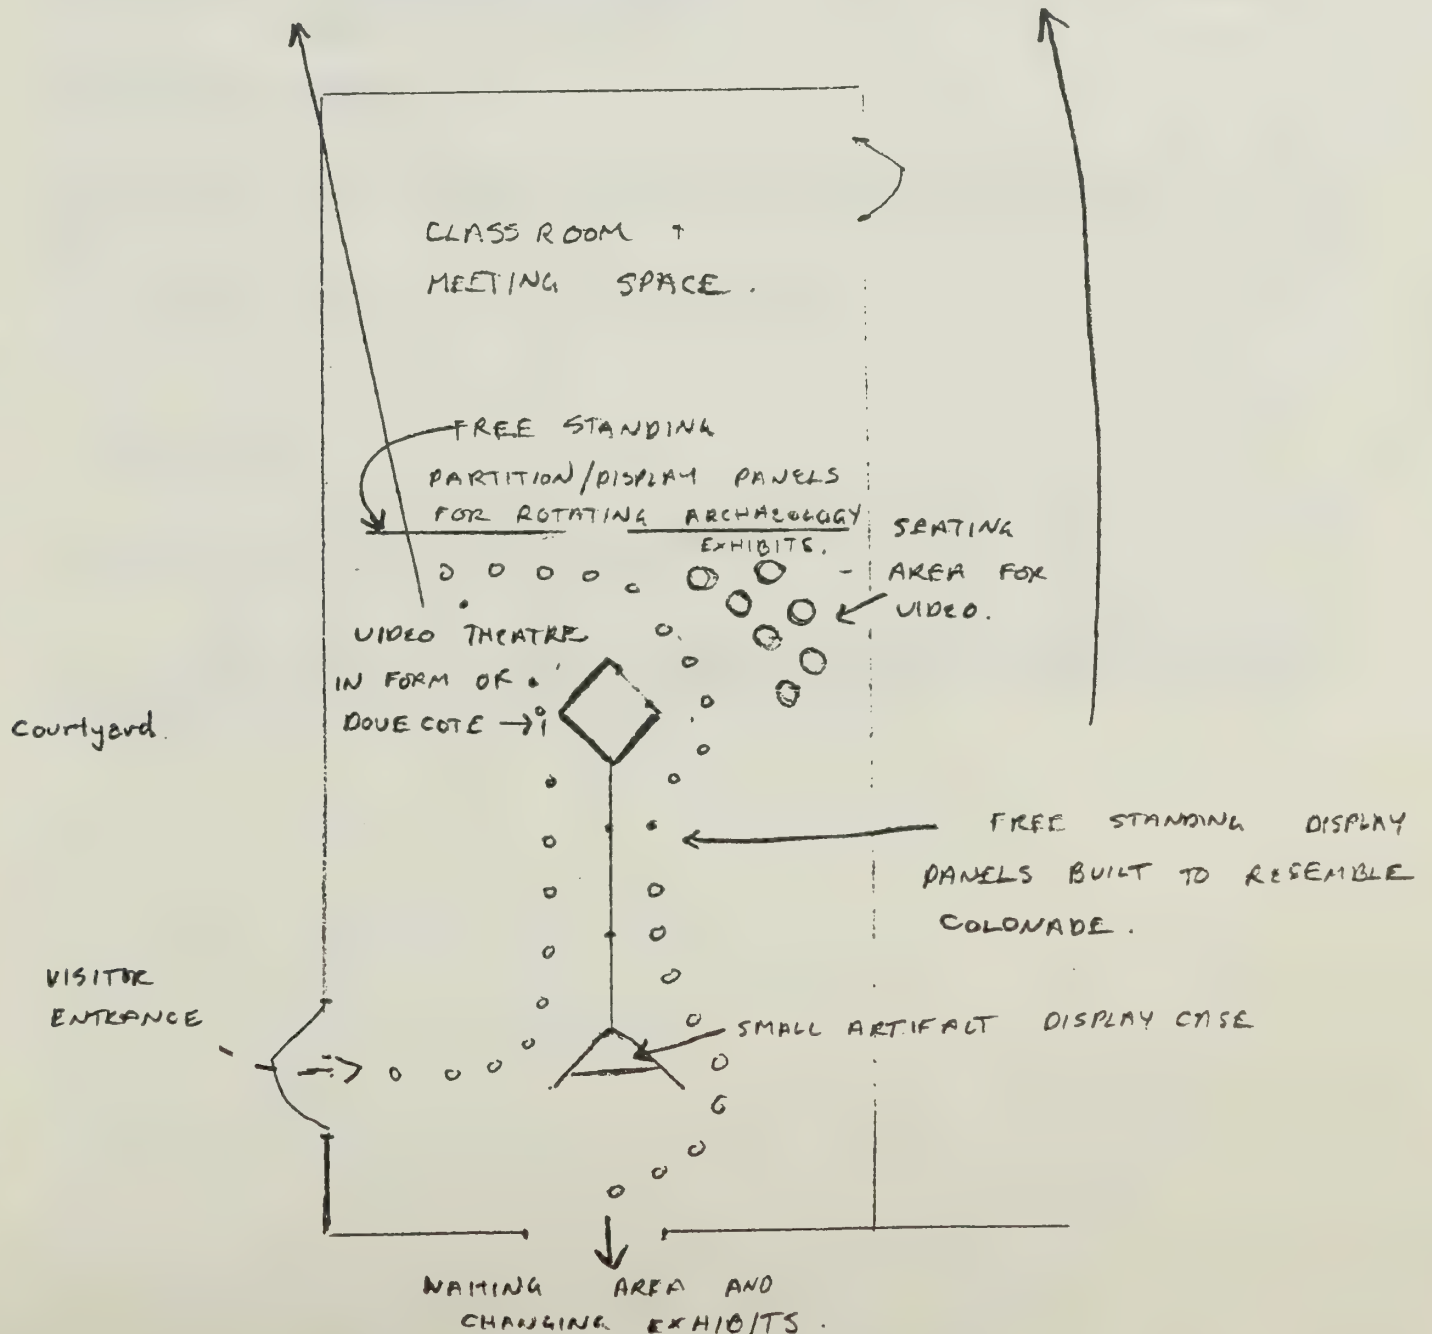 CLASS ROOM +
MEETING SPACE.
FREE STANDING
PARTITION/DISPLAY PANELS
FOR ROTATING ARCHAEOLOGY
EXHIBITS.
SEATING
AREA FOR
VIDEO.
VIDEO THEATRE
IN FORM OF
DOVE COTE
Courtyard.
FREE STANDING DISPLAY
PANELS BUILT TO RESEMBLE
COLONADE.
VISITOR
ENTRANCE
SMALL ARTIFACT DISPLAY CASE
WAITING AREA AND
CHANGING EXHIBITS.